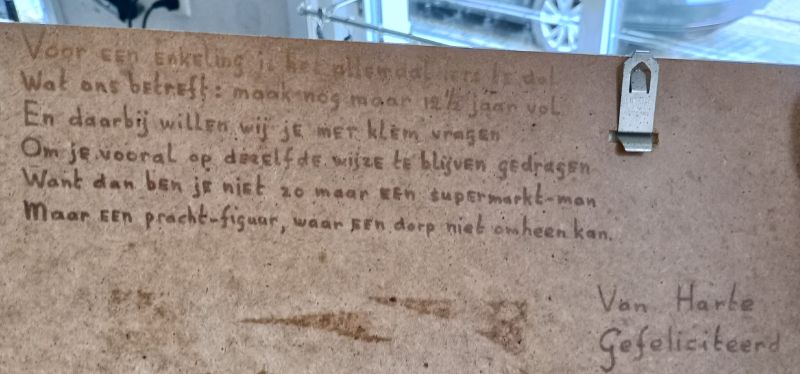 Voor EEN ENKELING is het allemaal iets te dol
Wat ons betreft: maak nog maar 12½ jaar vol
En daarbij willen wij je met klem vragen
Om je vooral op dezelfde wijze te blijven gedragen
Want dan ben je niet zo maar een supermarkt-man
Maar een pracht-figuur, waar een dorp niet omheen kan.
Van Harte
Gefeliciteerd